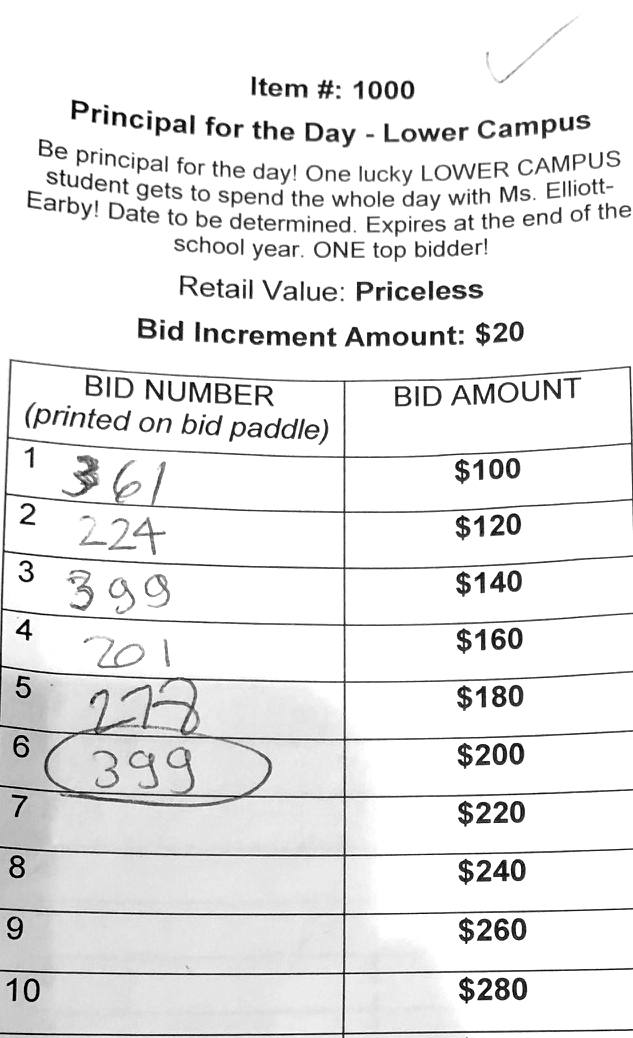 Item #: 1000
Principal for the Day - Lower Campus
Be principal for the day! One lucky LOWER CAMPUS
student gets to spend the whole day with Ms. Elliott-
Earby! Date to be determined. Expires at the end of the
school year. ONE top bidder!
Retail Value: Priceless
Bid Increment Amount: $20
BID NUMBER BID AMOUNT
(printed on bid paddle)
1 361 $100
2 224 $120
3 399 $140
4 201 $160
5 278 $180
6 399 $200
7 $220
8 $240
9 $260
10 $280